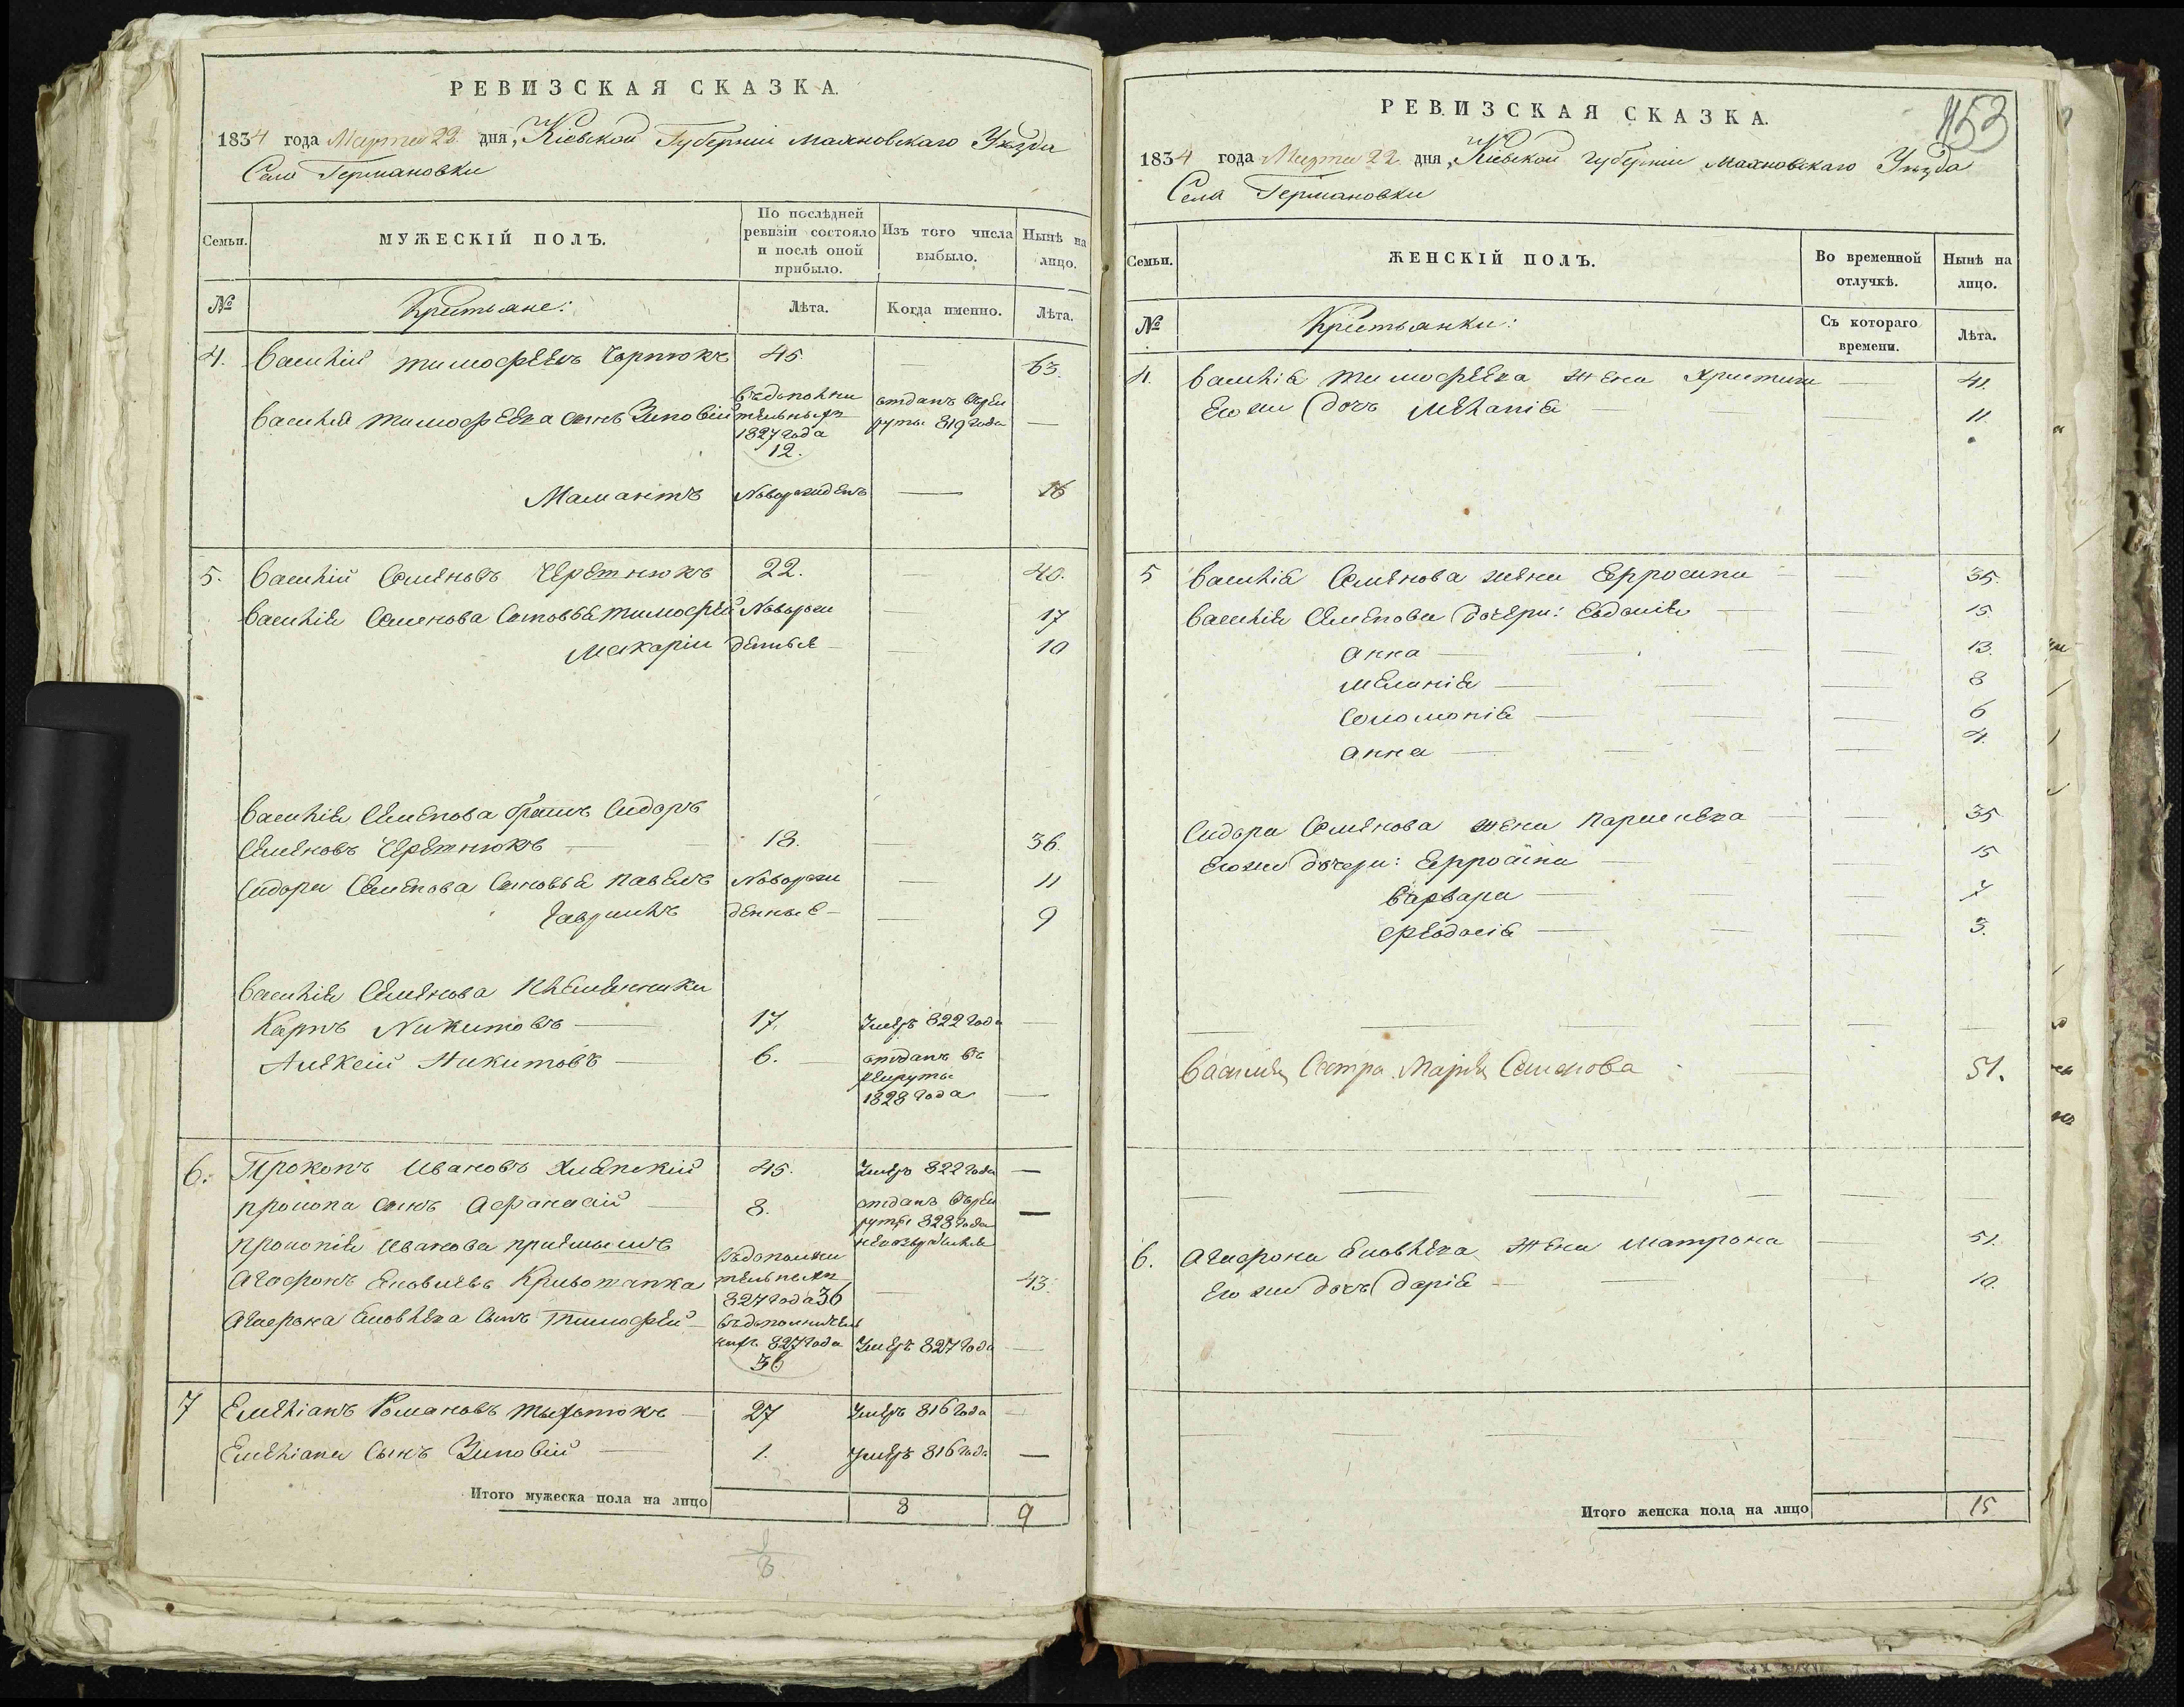 РЕВИЗСКАЯ СКАЗКА.
1834 года Марта 22 дня, Кіевской Губерніи Махновскаго Уѣзда
Села Германовки
Семьи.
МУЖЕСКІЙ ПОЛЪ.
По послѣдней ревизіи состояло и послѣ оной прибыло.
Изъ того числа выбыло.
Нынѣ на лицо.
№
Крестьяне:
Лѣта.
Когда именно.
Лѣта.
4. Василій Тимофѣевъ 45 — 63.
Василія Тимофѣева сынъ Зиновій въ дополнительныхъ 1827 года 12. отданъ въ рекруты 819 года —
Мамантъ Новорожденъ — 16
5. Василій Семеновъ Черетнюкъ 22. — 40.
Василія Семенова Сыновья Тимофей Новорож — 17
Макарій денные — 10
Василія Семенова братъ Сидоръ
Семеновъ Черетнюкъ — 18. — 36.
Сидора Семенова Сыновья Павелъ Новорож — 11
Гаврилъ денные — 9
Василія Семенова племенники
Карпъ Никитовъ — 17. Умеръ 822 года —
Алексей Никитовъ — 6. отданъ въ рекруты 1828 года —
6. Прокопъ Ивановъ 45. Умеръ 822 года —
Прокопа сынъ Афанасій — 8. отданъ въ рекруты 828 года —
Прокопія Иванова
Агафонъ въ дополнительныхъ 827 года 36 — 43.
Агафона Сынъ Тимофей — 827 года 36 Умеръ 827 года —
7 Емеліанъ Романовъ — 27 Умеръ 816 года —
Емеліана Сынъ Зиновій — 1. Умеръ 816 года —
Итого мужеска пола на лицо 8 9
РЕВИЗСКАЯ СКАЗКА.
153
1834 года Марта 22 дня, Кіевской губерніи Махновскаго Уѣзда
Села Германовки
Семьи.
ЖЕНСКІЙ ПОЛЪ.
Во временной отлучкѣ.
Нынѣ на лицо.
№
Крестьянки:
Съ котораго времени.
Лѣта.
4. Василія Тимофѣева жена Христина — 41.
Его же дочь Меланія — 11.
5 Василія Семенова жена Ефросина — 35.
Василія Семенова дочери: Евдокія — 15.
Анна — 13.
Меланія — 8
Соломонія — 6
Анна — 4.
Сидора Семенова жена Параскева — 35
Его же дочери: Ефросина — 15
Варвара — 7
Феодосія — 3.
Василія Сестра Марія Семенова — 51.
6. Агафона жена Матрона — 51.
Его же дочь Дарія — 10.
Итого женска пола на лицо 15